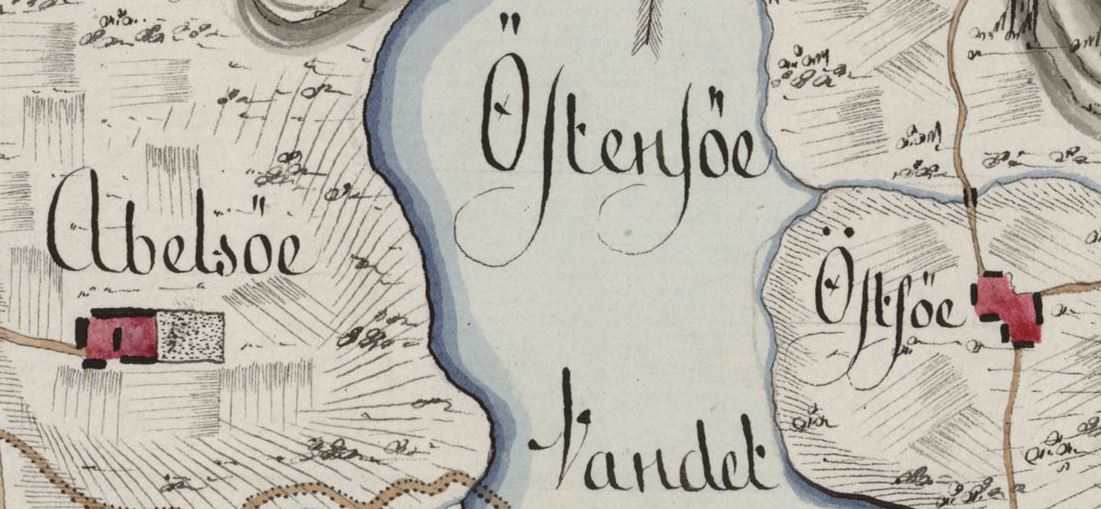 Öſtenſöe
Abelsöe
Öſtſöe
Vandet